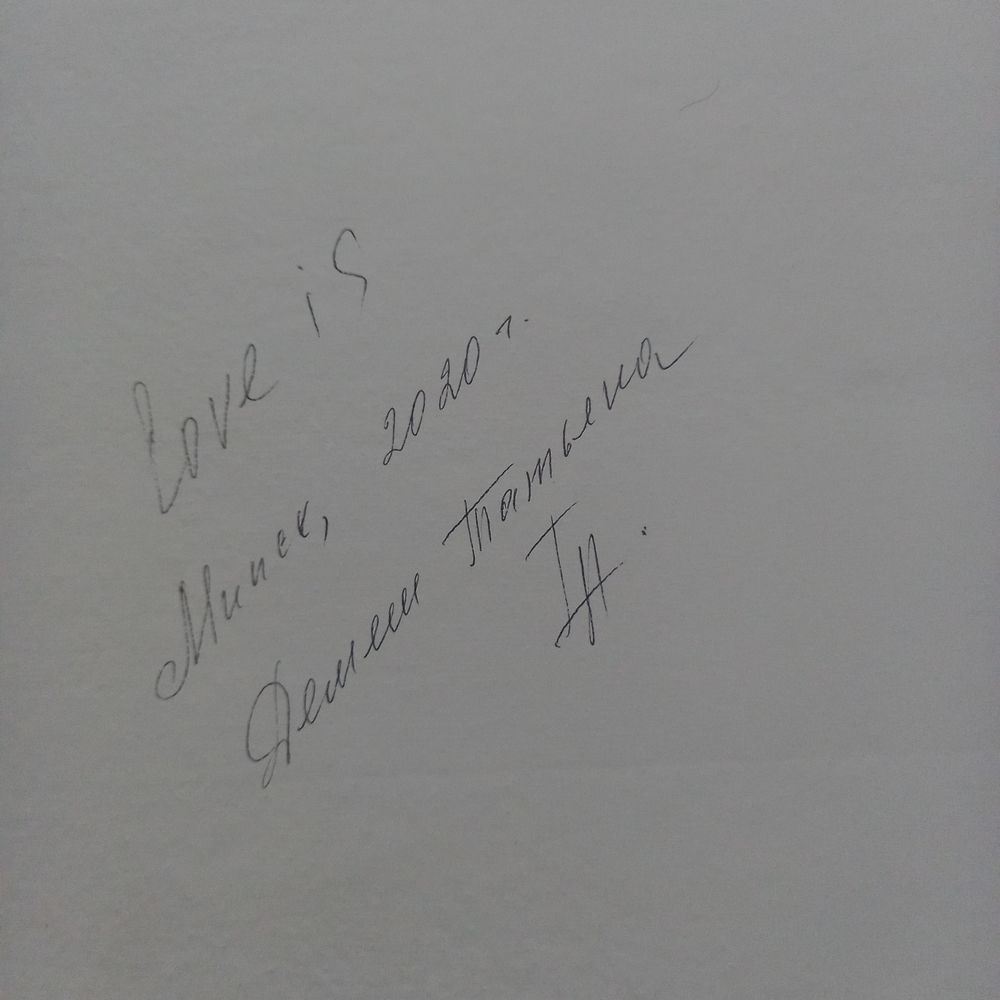 Love is
Минск, 2020 г.
Демеш Татьяна